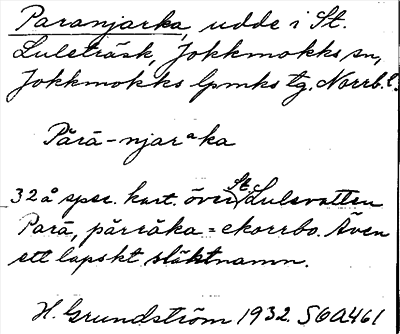 Paranjarka, udde i St.
Luleträsk, Jokkmokks sn,
Jokkmokks lpmks tg. Norrb. l.
Pārā-njarᵃka
32 å spec. kart. över St. Lulevatten
Parā, pārrāka = ekorrbo. Även
ett lapskt släktnamn.
H. Grundström 1932. SOA461